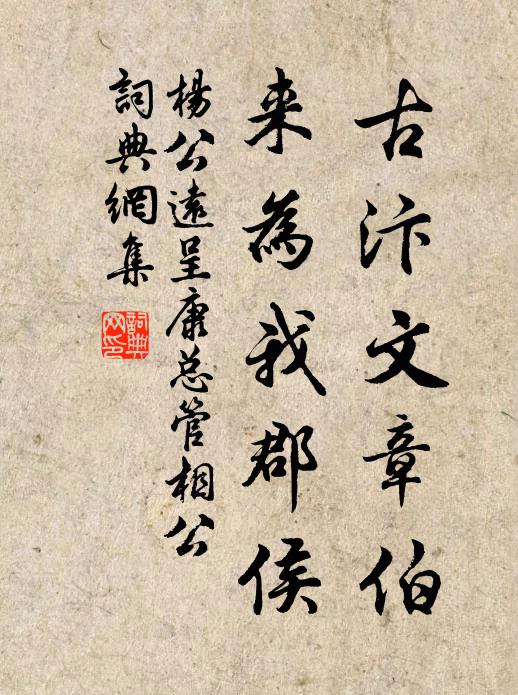 古汴文章伯
来為我郡侯
楊公遠呈康总管相公
詞典網集
詞典
网印